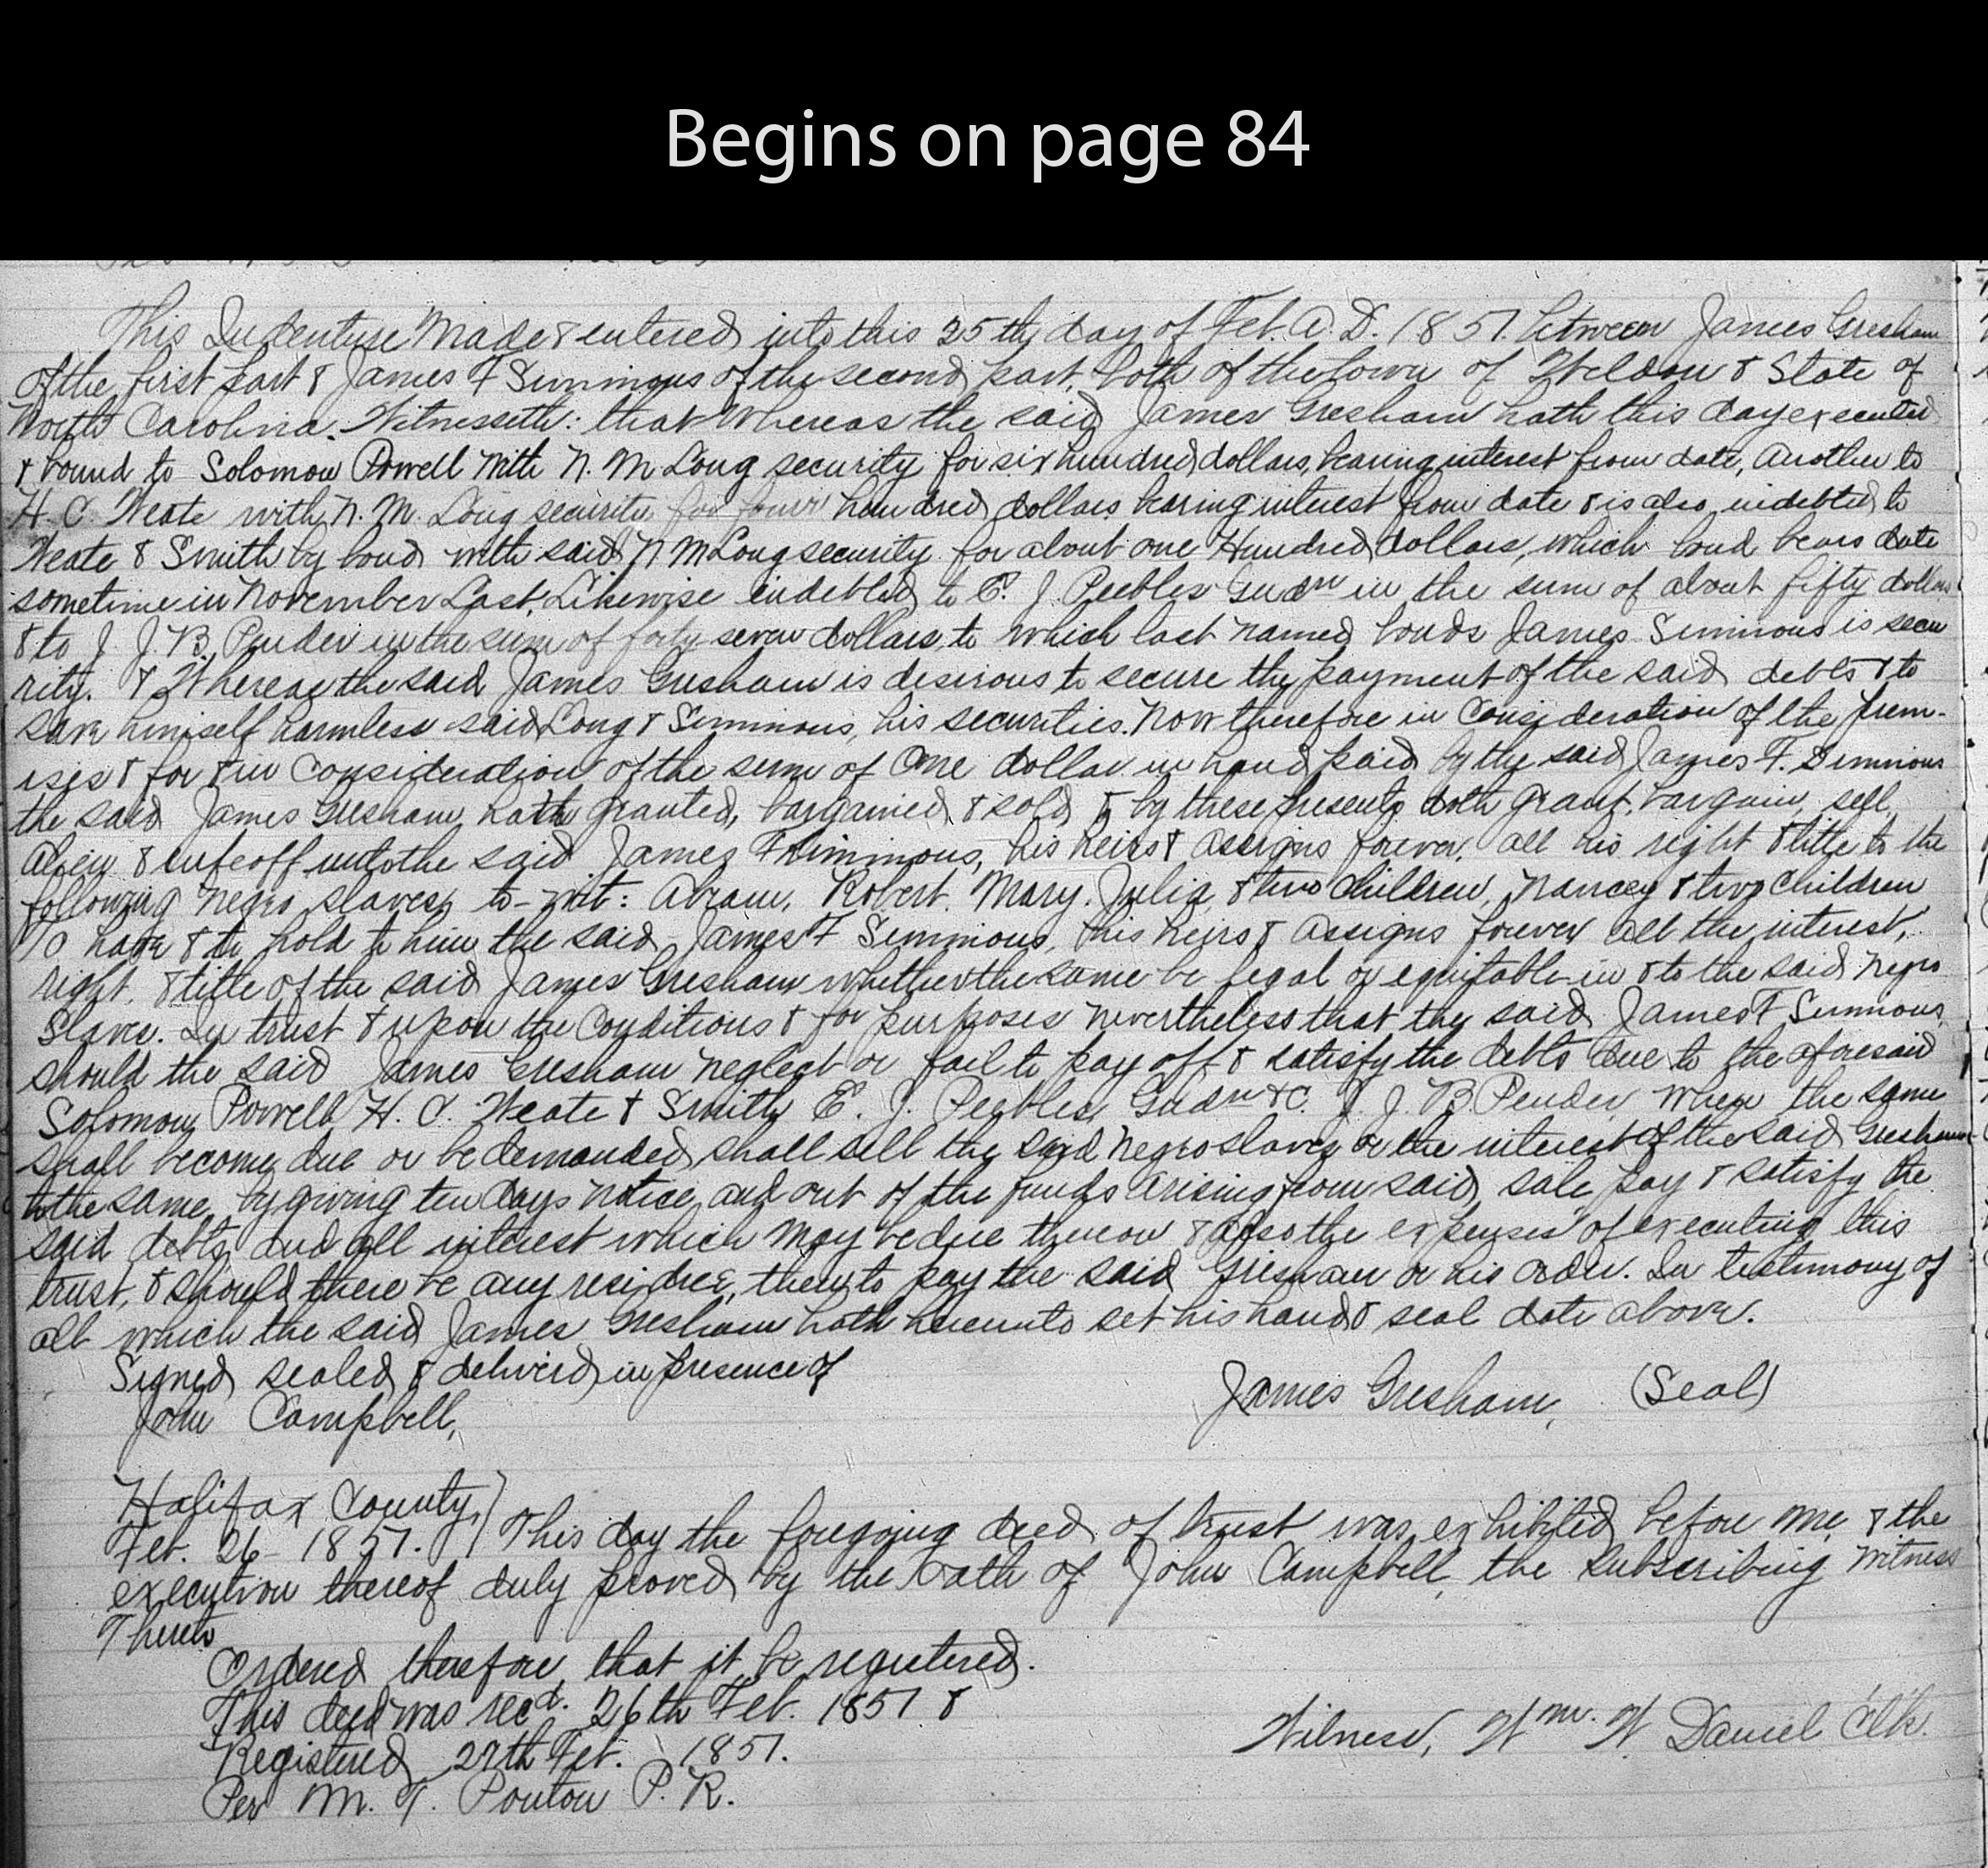 Begins on page 84
This Indenture Made & entered into this 25th day of Feb. A. D. 1851. between James Gresham
of the first part & James F Simmons of the second part, both of the town of Weldon & State of
North Carolina. Witnesseth: that Whereas the said James Gresham hath this day executed
& bound to Solomon Powell with N. M Long security for six hundred dollars, bearing interest from date, Another to
H. C. Weate with N. M. Long security for four hundred dollars bearing interest from date & is also indebted to
Weate & Smith by bond with said N M Long security for about one Hundred dollars, which bond bears date
sometime in November Last, Likewise indebted to E. J. Peebles Gudn in the sum of about fifty dollars
& to J. J. B. Pender in the sum of forty seven dollars, to which last named bonds James Simmons is secu
rity. & Whereas the said James Gresham is desirous to secure the payment of the said debts & to
save himself harmless said Long & Simmons, his securities. Now therefore in Consideration of the prem-
ises & for & in Consideration of the sum of One dollar in hand paid by the said James F. Simmons
the said James Gresham hath granted, bargained & sold & by these presents doth grant, bargain, sell,
alien & enfeoff unto the said James F Simmons, his heirs & assigns forever, all his right & title to the
following negro slaves, to-wit: Abram, Robert, Mary, Julia, & two children, Nancey & two children
To have & to hold to him the said James F Simmons, his heirs & assigns forever all the interest,
right, & title of the said James Gresham whether the same be legal or equitable in & to the said negro
Slaves. In trust & upon the Conditions & for purposes nevertheless that the said James F Simmons,
should the said James Gresham neglect or fail to pay off & satisfy the debts due to the aforesaid
Solomon Powell, H. C. Weate & Smith, E. J. Peebles, Gudn &C. J. J. B. Pender, when the same
shall become due or be demanded, shall sell the said negro slaves or the interest of the said Gresham
to the same, by giving ten days notice, and out of the funds arising from said sale, pay & satisfy the
said debts, and all interest which may be due thereon & also the expenses of executing this
trust, & should there be any residue, then to pay the said Gresham or his order. In testimony of
all which the said James Gresham hath hereunto set his hand & seal date above.
Signed sealed & deliverd in presence of
John Campbell,
James Gresham, (Seal)
Halifax County,)
Feb. 26 - 1851. ) This day the foregoing deed of trust was exhibited before me, & the
execution thereof duly proved by the Oath of John Campbell, the subscribing witness
Thereto
Ordered therefore that it be registered.
This deed was recd. 26th Feb. 1851 &
Registered 27th Feb. 1851.
Per M. T. Ponton P. R.
Witness, Wm. W. Daniel Clk.